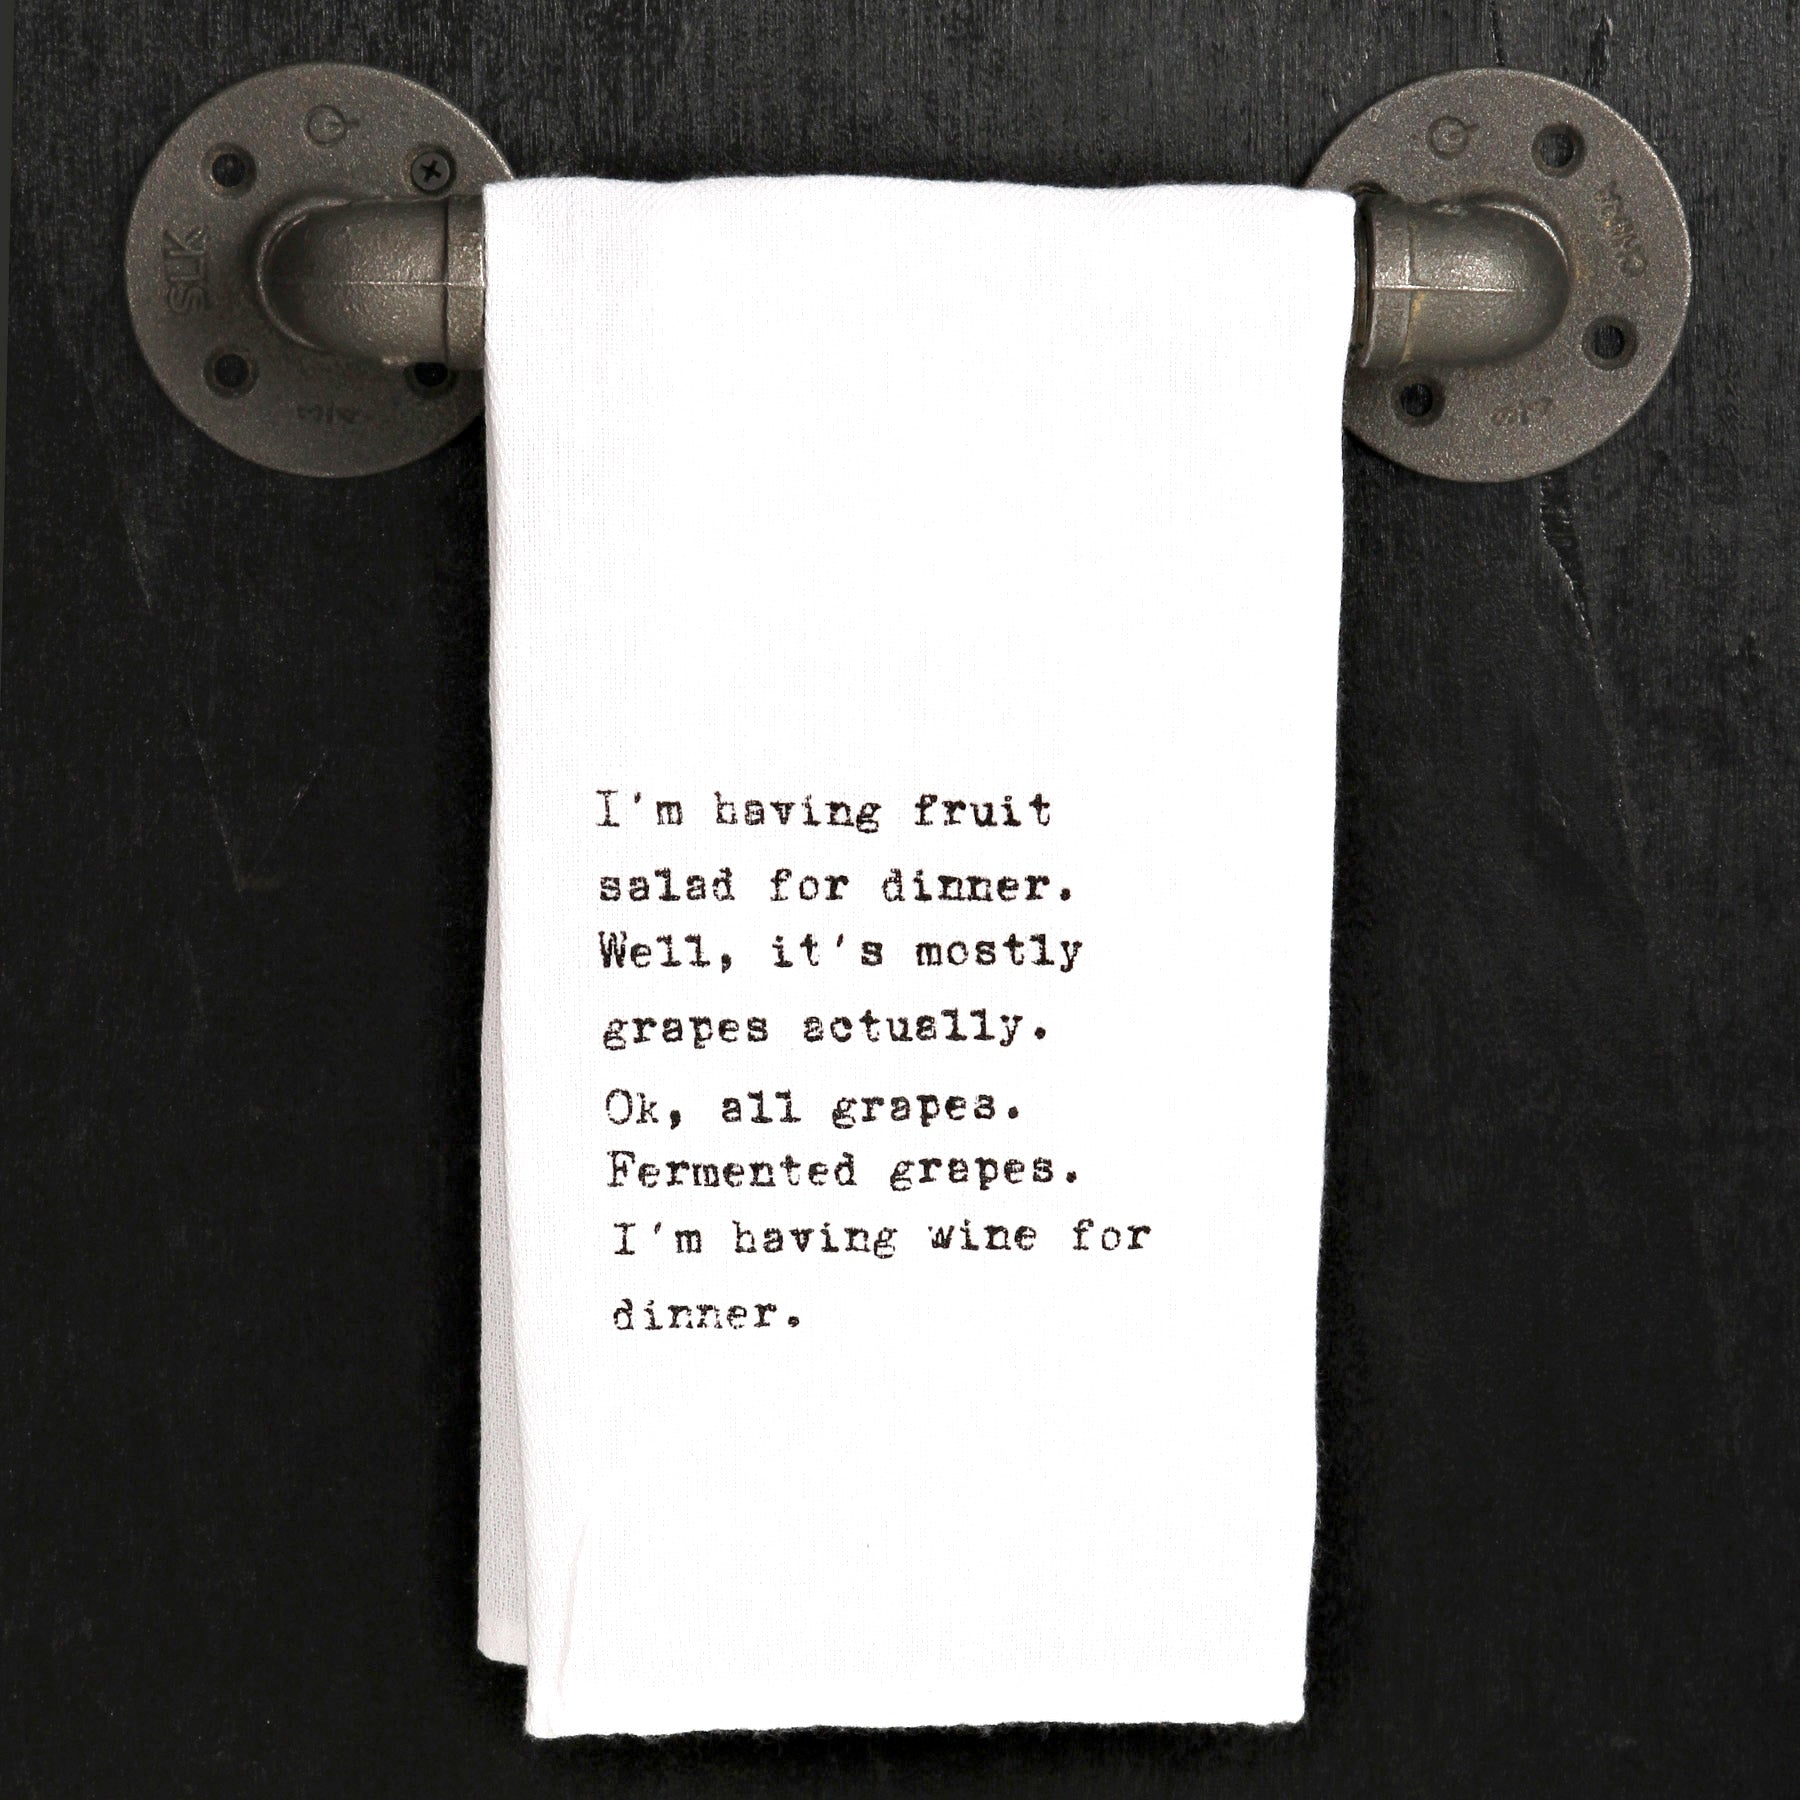 Q
SLK
Q
China
I'm having fruit
salad for dinner.
Well, it's mostly
grapes actually.
Ok, all grapes.
Fermented grapes.
I'm having wine for
dinner.